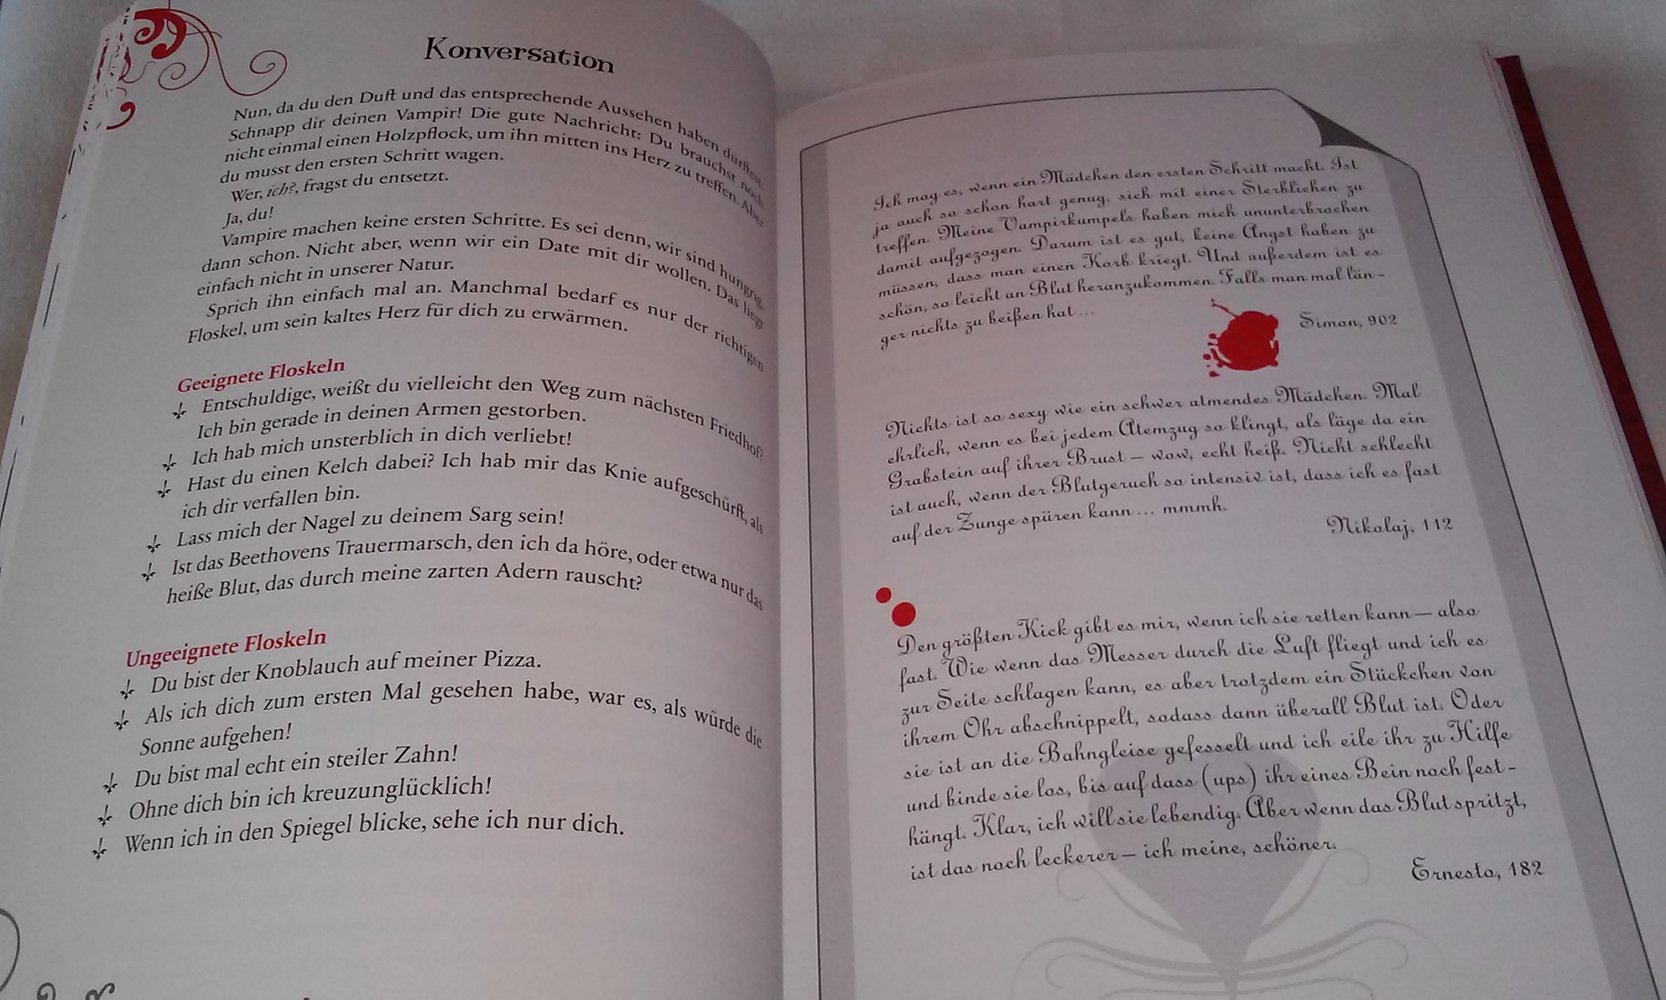 Konversation
Nun, da du den Duft und das entsprechende Aussehen haben dürftest:
Schnapp dir deinen Vampir! Die gute Nachricht: Du brauchst noch
nicht einmal einen Holzpflock, um ihn mitten ins Herz zu treffen. Aber
du musst den ersten Schritt wagen.
Wer, ich?, fragst du entsetzt.
Ja, du!
Vampire machen keine ersten Schritte. Es sei denn, wir sind hungrig,
dann schon. Nicht aber, wenn wir ein Date mit dir wollen. Das liegt
einfach nicht in unserer Natur.
Sprich ihn einfach mal an. Manchmal bedarf es nur der richtigen
Floskel, um sein kaltes Herz für dich zu erwärmen.
Geeignete Floskeln
Entschuldige, weißt du vielleicht den Weg zum nächsten Friedhof?
Ich bin gerade in deinen Armen gestorben.
Ich hab mich unsterblich in dich verliebt!
Hast du einen Kelch dabei? Ich hab mir das Knie aufgeschürft, als
ich dir verfallen bin.
Lass mich der Nagel zu deinem Sarg sein!
Ist das Beethovens Trauermarsch, den ich da höre, oder etwa nur das
heiße Blut, das durch meine zarten Adern rauscht?
Ungeeignete Floskeln
Du bist der Knoblauch auf meiner Pizza.
Als ich dich zum ersten Mal gesehen habe, war es, als würde die
Sonne aufgehen!
Du bist mal echt ein steiler Zahn!
Ohne dich bin ich kreuzunglücklich!
Wenn ich in den Spiegel blicke, sehe ich nur dich.
Ich mag es, wenn ein Mädchen den ersten Schritt macht. Ist
ja auch so schon hart genug, sich mit einer Sterblichen zu
treffen. Meine Vampirkumpels haben mich ununterbrochen
damit aufgezogen. Darum ist es gut, keine Angst haben zu
müssen, dass man einen Korb kriegt. Und außerdem ist es
schön, so leicht an Blut heranzukommen. Falls man mal län-
ger nichts zu beißen hat ...
Simon, 902
Nichts ist so sexy wie ein schwer atmendes Mädchen. Mal
ehrlich, wenn es bei jedem Atemzug so klingt, als läge da ein
Grabstein auf ihrer Brust – wow, echt heiß. Nicht schlecht
ist auch, wenn der Blutgeruch so intensiv ist, dass ich es fast
auf der Zunge spüren kann ... mmmh.
Nikolaj, 112
Den größten Kick gibt es mir, wenn ich sie retten kann – also
fast. Wie wenn das Messer durch die Luft fliegt und ich es
zur Seite schlagen kann, es aber trotzdem ein Stückchen von
ihrem Ohr abschnippelt, sodass dann überall Blut ist. Oder
sie ist an die Bahngleise gefesselt und ich eile ihr zu Hilfe
und binde sie los, bis auf dass (ups) ihr eines Bein noch fest-
hängt. Klar, ich will sie lebendig. Aber wenn das Blut spritzt,
ist das noch leckerer – ich meine, schöner.
Ernesto, 182